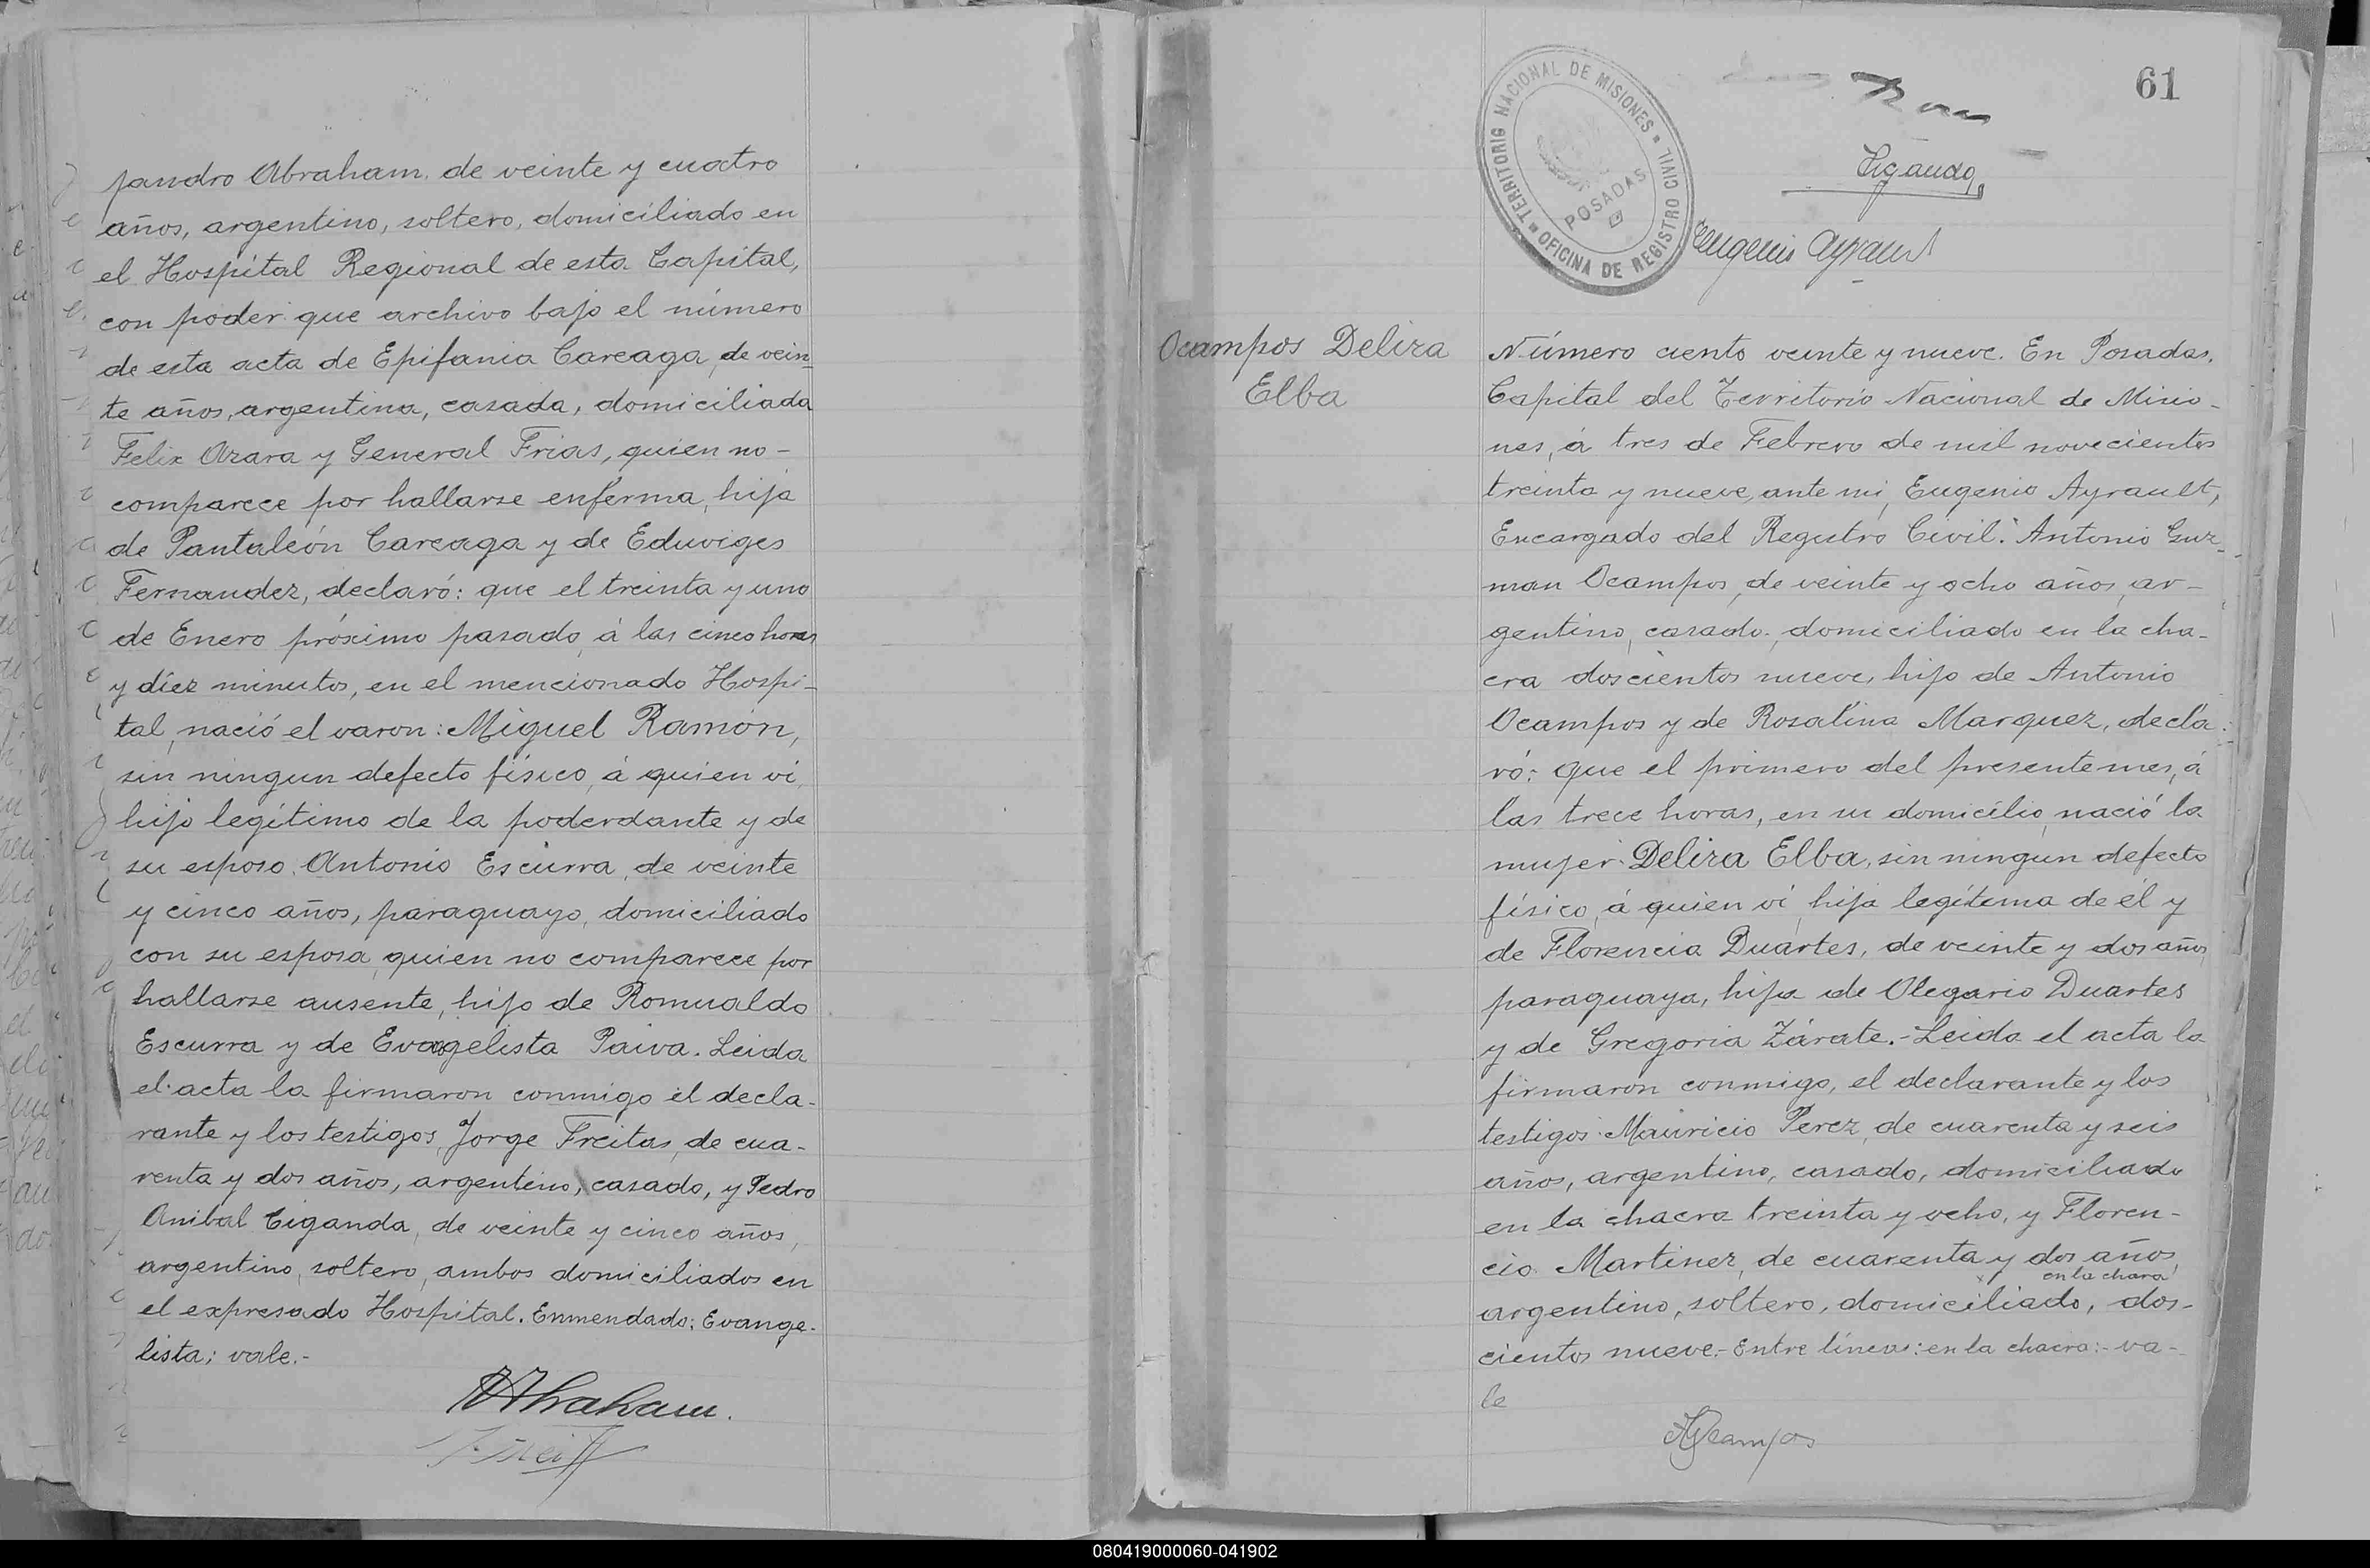 jandro Abraham, de veinte y cuatro
años, argentino, soltero, domiciliado en
el Hospital Regional de esta Capital,
con poder que archivo bajo el número
de esta acta de Epifania Careaga, de vein-
te años, argentina, casada, domiciliada
Felix Azara y General Frias, quien no-
comparece por hallarse enferma, hija
de Pantaleón Careaga y de Eduviges
Fernandez, declaró: que el treinta y uno
de Enero próximo pasado, á las cinco horas
y diez minutos, en el mencionado Hospi-
tal, nació el varon: Miguel Ramón,
sin ningun defecto físico, á quien ví,
hijo legítimo de la poderdante y de
su esposo, Antonio Escurra, de veinte
y cinco años, paraguayo, domiciliado
con su esposa, quien no comparece por
hallarse ausente, hijo de Romualdo
Escurra y de Evangelista Paiva. Leida
el acta la firmaron conmigo el decla-
rante y los testigos, Jorge Freitas, de cua-
renta y dos años, argentino, casado, y Pedro
Anibal Ciganda, de veinte y cinco años,
argentino, soltero, ambos domiciliados en
el expresado Hospital. Enmendado: Evange-
lista: vale.-
Abraham.
61
TERRITORIO NACIONAL DE MISIONES
OFICINA DE REGISTRO CIVIL
POSADAS
Ciganda
Eugenio Ayrault
Ocampos Delira
Elba
Número ciento veinte y nueve. En Posadas,
Capital del Territorio Nacional de Misio-
nes, á tres de Febrero de mil novecientos
treinta y nueve, ante mi, Eugenio Ayrault,
Encargado del Registro Civil: Antonio Guz-
man Ocampos, de veinte y ocho años, ar-
gentino, casado, domiciliado en la cha-
cra doscientos nueve, hijo de Antonio
Ocampos y de Rosalina Marquez, decla-
ró: que el primero del presente mes, á
las trece horas, en su domicilio, nació la
mujer: Delira Elba, sin ningun defecto
físico, á quien ví, hija legítima de él y
de Florencia Duartes, de veinte y dos años,
paraguaya, hija de Olegario Duartes
y de Gregoria Zárate.- Leida el acta la
firmaron conmigo, el declarante y los
testigos: Mauricio Perez, de cuarenta y seis
años, argentino, casado, domiciliado
en la chacra treinta y ocho, y Floren-
cio Martinez, de cuarenta y dos años,
en la chacra
argentino, soltero, domiciliado, dos-
cientos nueve.- Entre líneas: en la chacra:- va-
le
AGOcampos
080419000060-041902